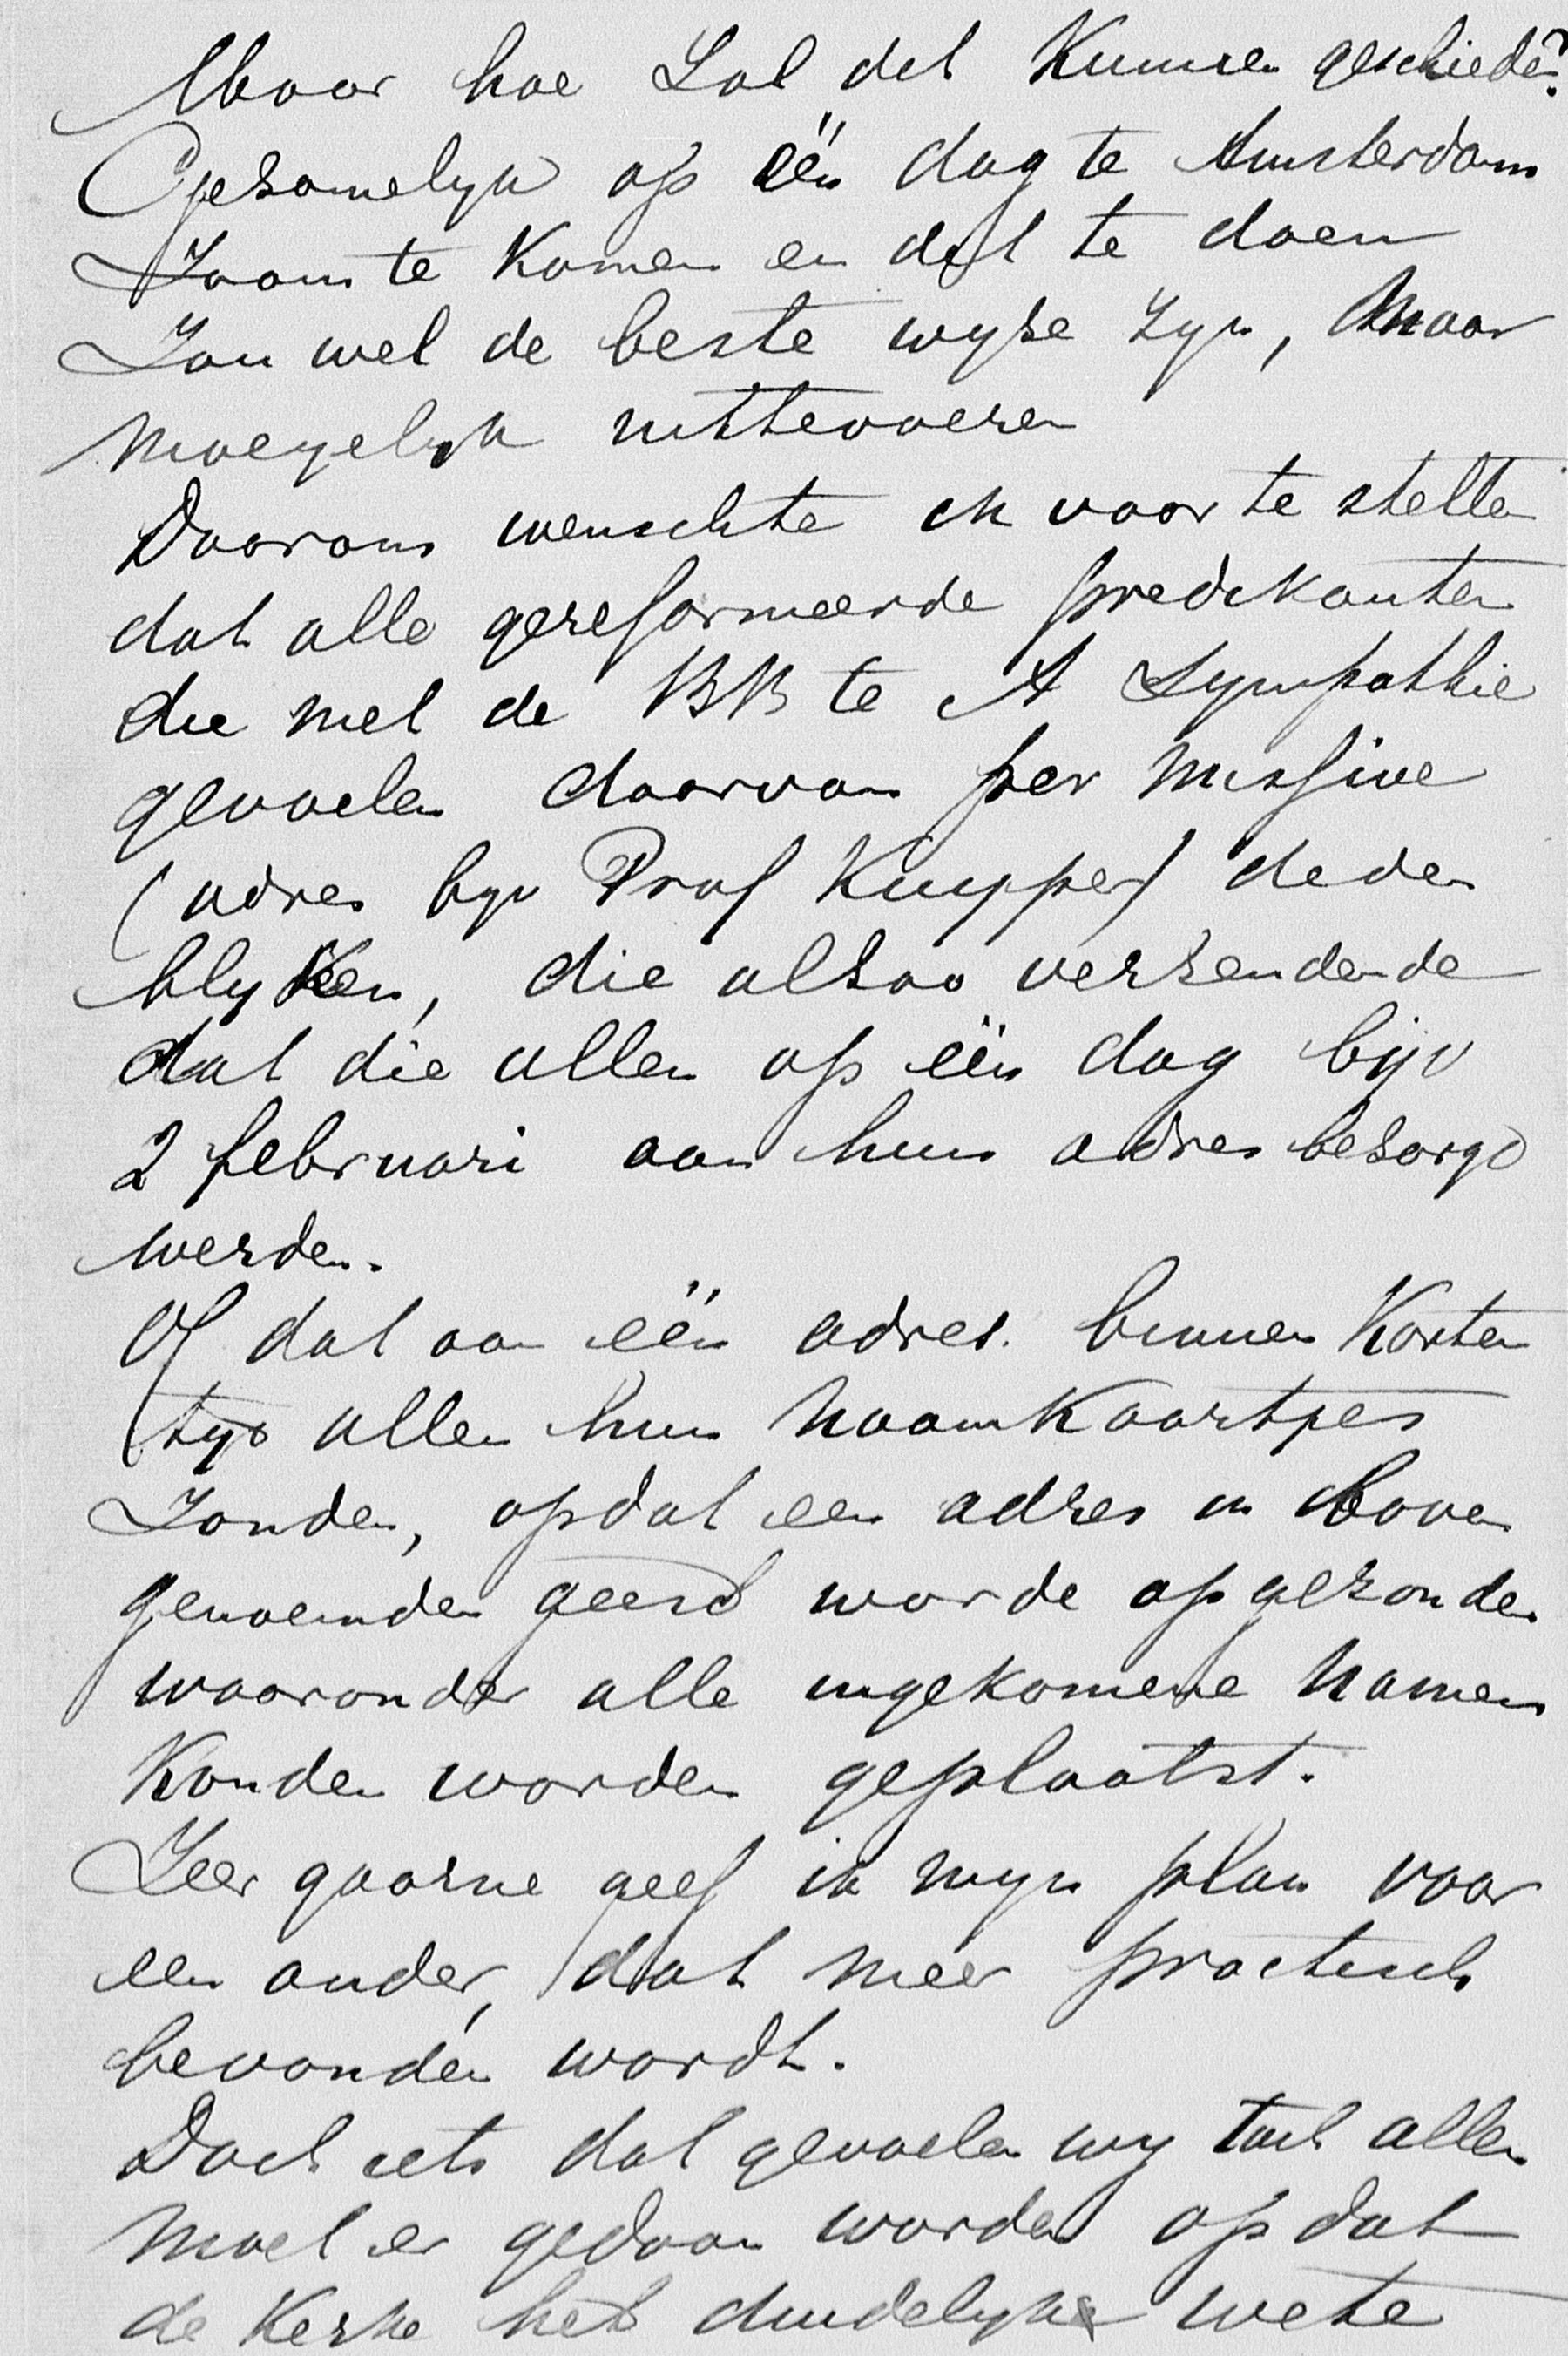 Maar hoe Zal dat Kunnen geschieden?
Gezamelyk op één dag te Amsterdam
Zaam te Komen en dat te doen
Zou wel de beste wyze zyn, Maar
moeyelyk uittevoeren
Daarom wenschte ik voor te stellen
dat alle gereformeerde predikanten
die met de BB te A Sympathie
gevoelen daarvan per missive
(adres byv Prof Kuyper) deden
blyken, die alzoo verzendende
dat die allen op één dag bijv
2 februari aan hun adres bezorgd
werden.
Of dat aan één adres. binnen Korten
tyd allen hun Naamkaartjes
Zonden, opdat een adres in boven
genoemden geest worde opgezonden
waaronder alle ingekomene Namen
Konden worden geplaatst.
Zeer gaarne geef ik myn plan voor
een ander, dat meer practisch
bevonden wordt.
Doch iets dat gevoelen wy toch allen
moet er gedaan worden opdat
de Kerke het duidelyke wete